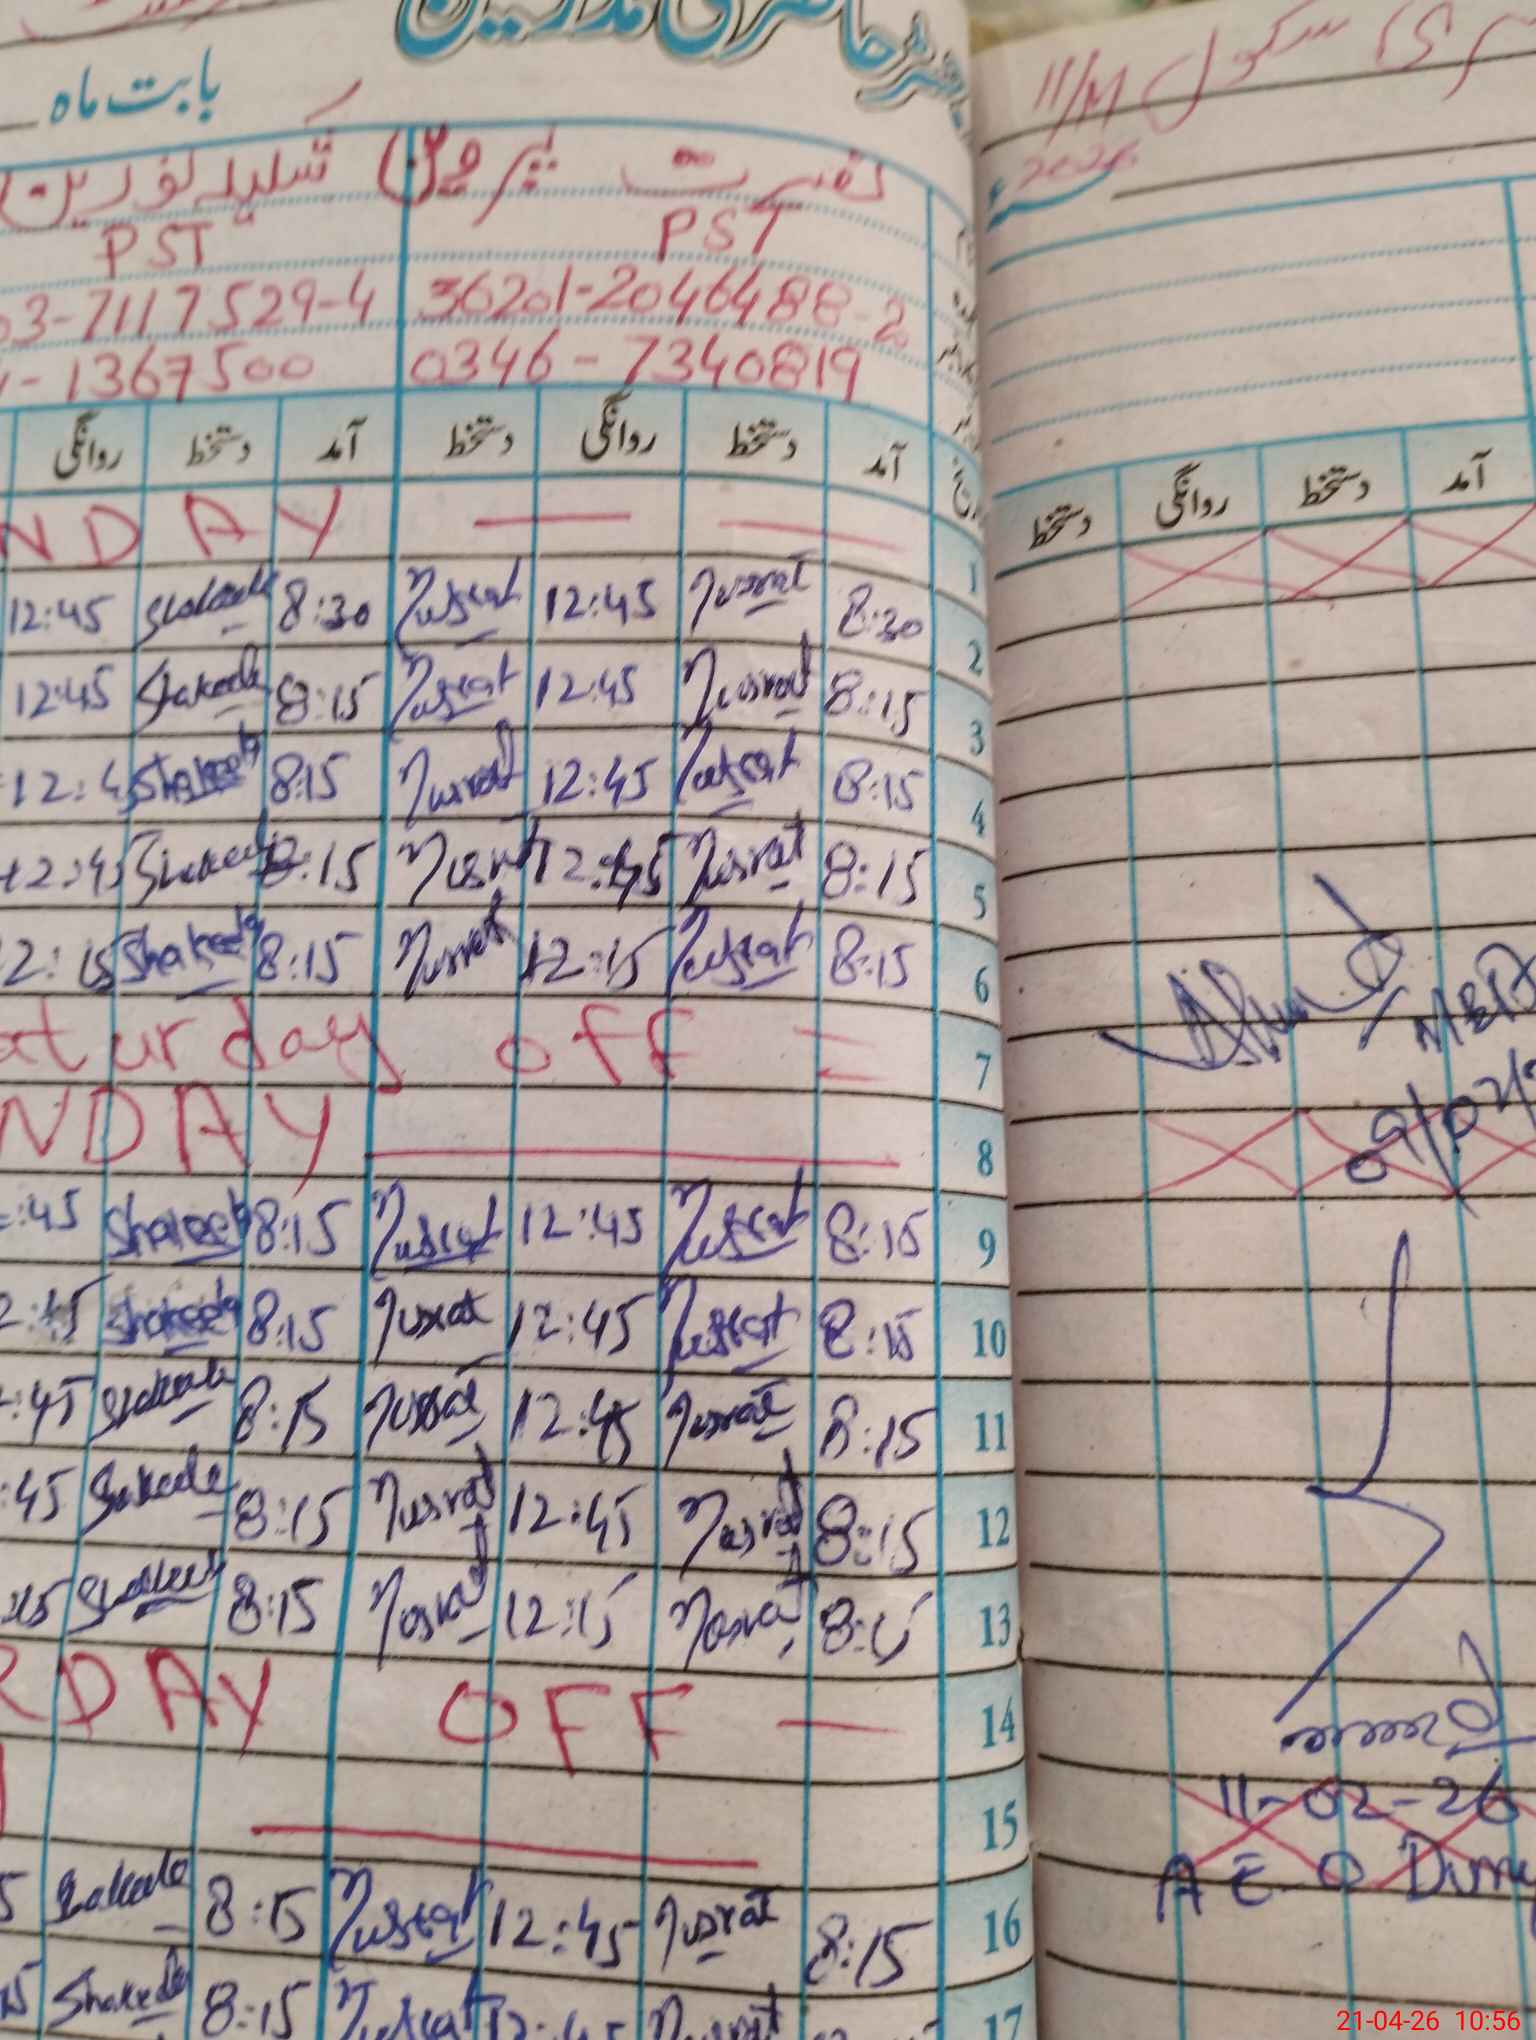 حاضری مدرسین
بابت ماہ
سکول 11/M
2026
نصرت پروین
PST PST
03-7117529-4 36201-2046488-2
-1367500 0346-7340819
روانگی دستخط آمد دستخط روانگی دستخط آمد
دستخط روانگی دستخط آمد
NDAY — — 1
12:45 Shakeela 8:30 Nusrat 12:45 Nusrat 8:30 2
12:45 Shakeela 8:15 Nusrat 12:45 Nusrat 8:15 3
12:45 Shakeela 8:15 Nusrat 12:45 Nusrat 8:15 4
12:45 Shakeela 8:15 Nusrat 12:45 Nusrat 8:15 5
2:15 Shakeela 8:15 Nusrat 12:15 Nusrat 8:15 6
aturday off = 7
NDAY — 8
:45 Shakeela 8:15 Nusrat 12:45 Nusrat 8:15 9
2:45 Shakeela 8:15 Nusrat 12:45 Nusrat 8:15 10
:45 Shakeela 8:15 Nusrat 12:45 Nusrat 8:15 11
:45 Shakeela 8:15 Nusrat 12:45 Nusrat 8:15 12
:15 Shakeela 8:15 Nusrat 12:15 Nusrat 8:15 13
RDAY OFF — 14
15
5 Shakeela 8:15 Nusrat 12:45 Nusrat 8:15 16
15 Shakeela 8:15 Nusrat 12:45 Nusrat 17
09/02/2
11-02-26
A E O
21-04-26 10:56